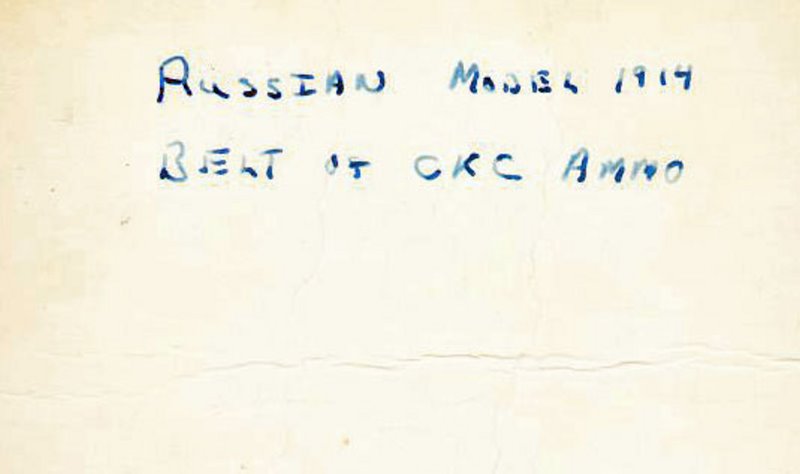 RUSSIAN MODEL 1914
BELT OF CKC AMMO